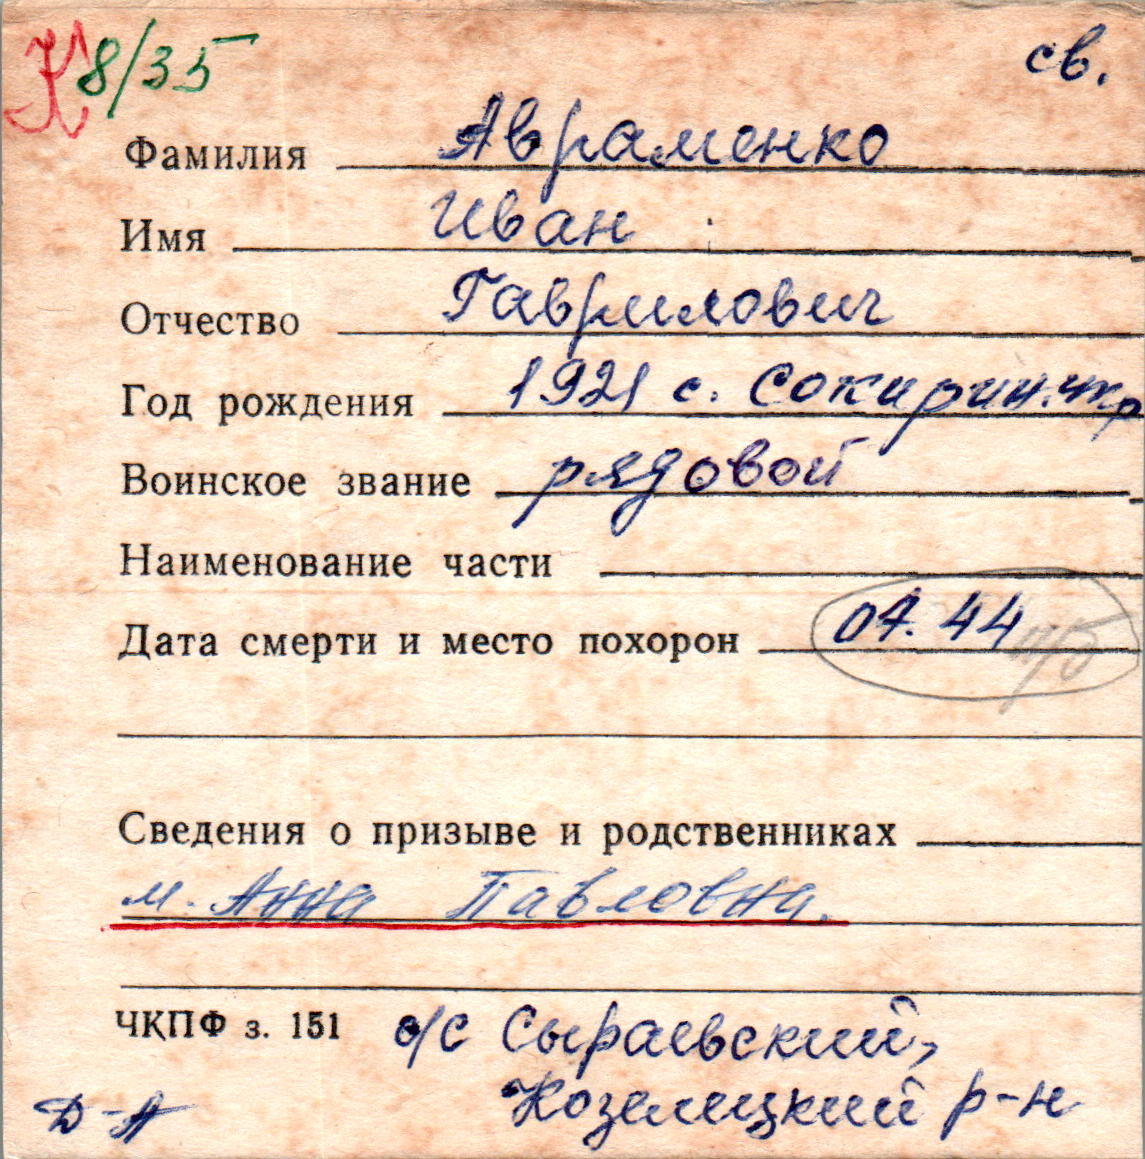 К 8/35 св.
Фамилия Авраменко
Имя Иван
Отчество Гаврилович
Год рождения 1921 с. Сокирин.
Воинское звание рядовой
Наименование части
Дата смерти и место похорон 04.44 п/б
Сведения о призыве и родственниках
м. Анна Павловна.
ЧКПФ з. 151 с/с Сыраевский,
Д-А Козелецкий р-н